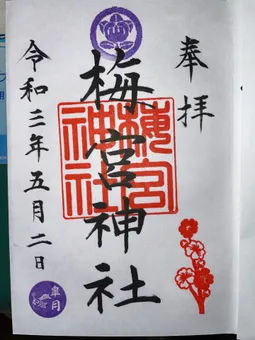 奉拝
梅宮神社
梅宮神社
令和三年五月二日
皐月